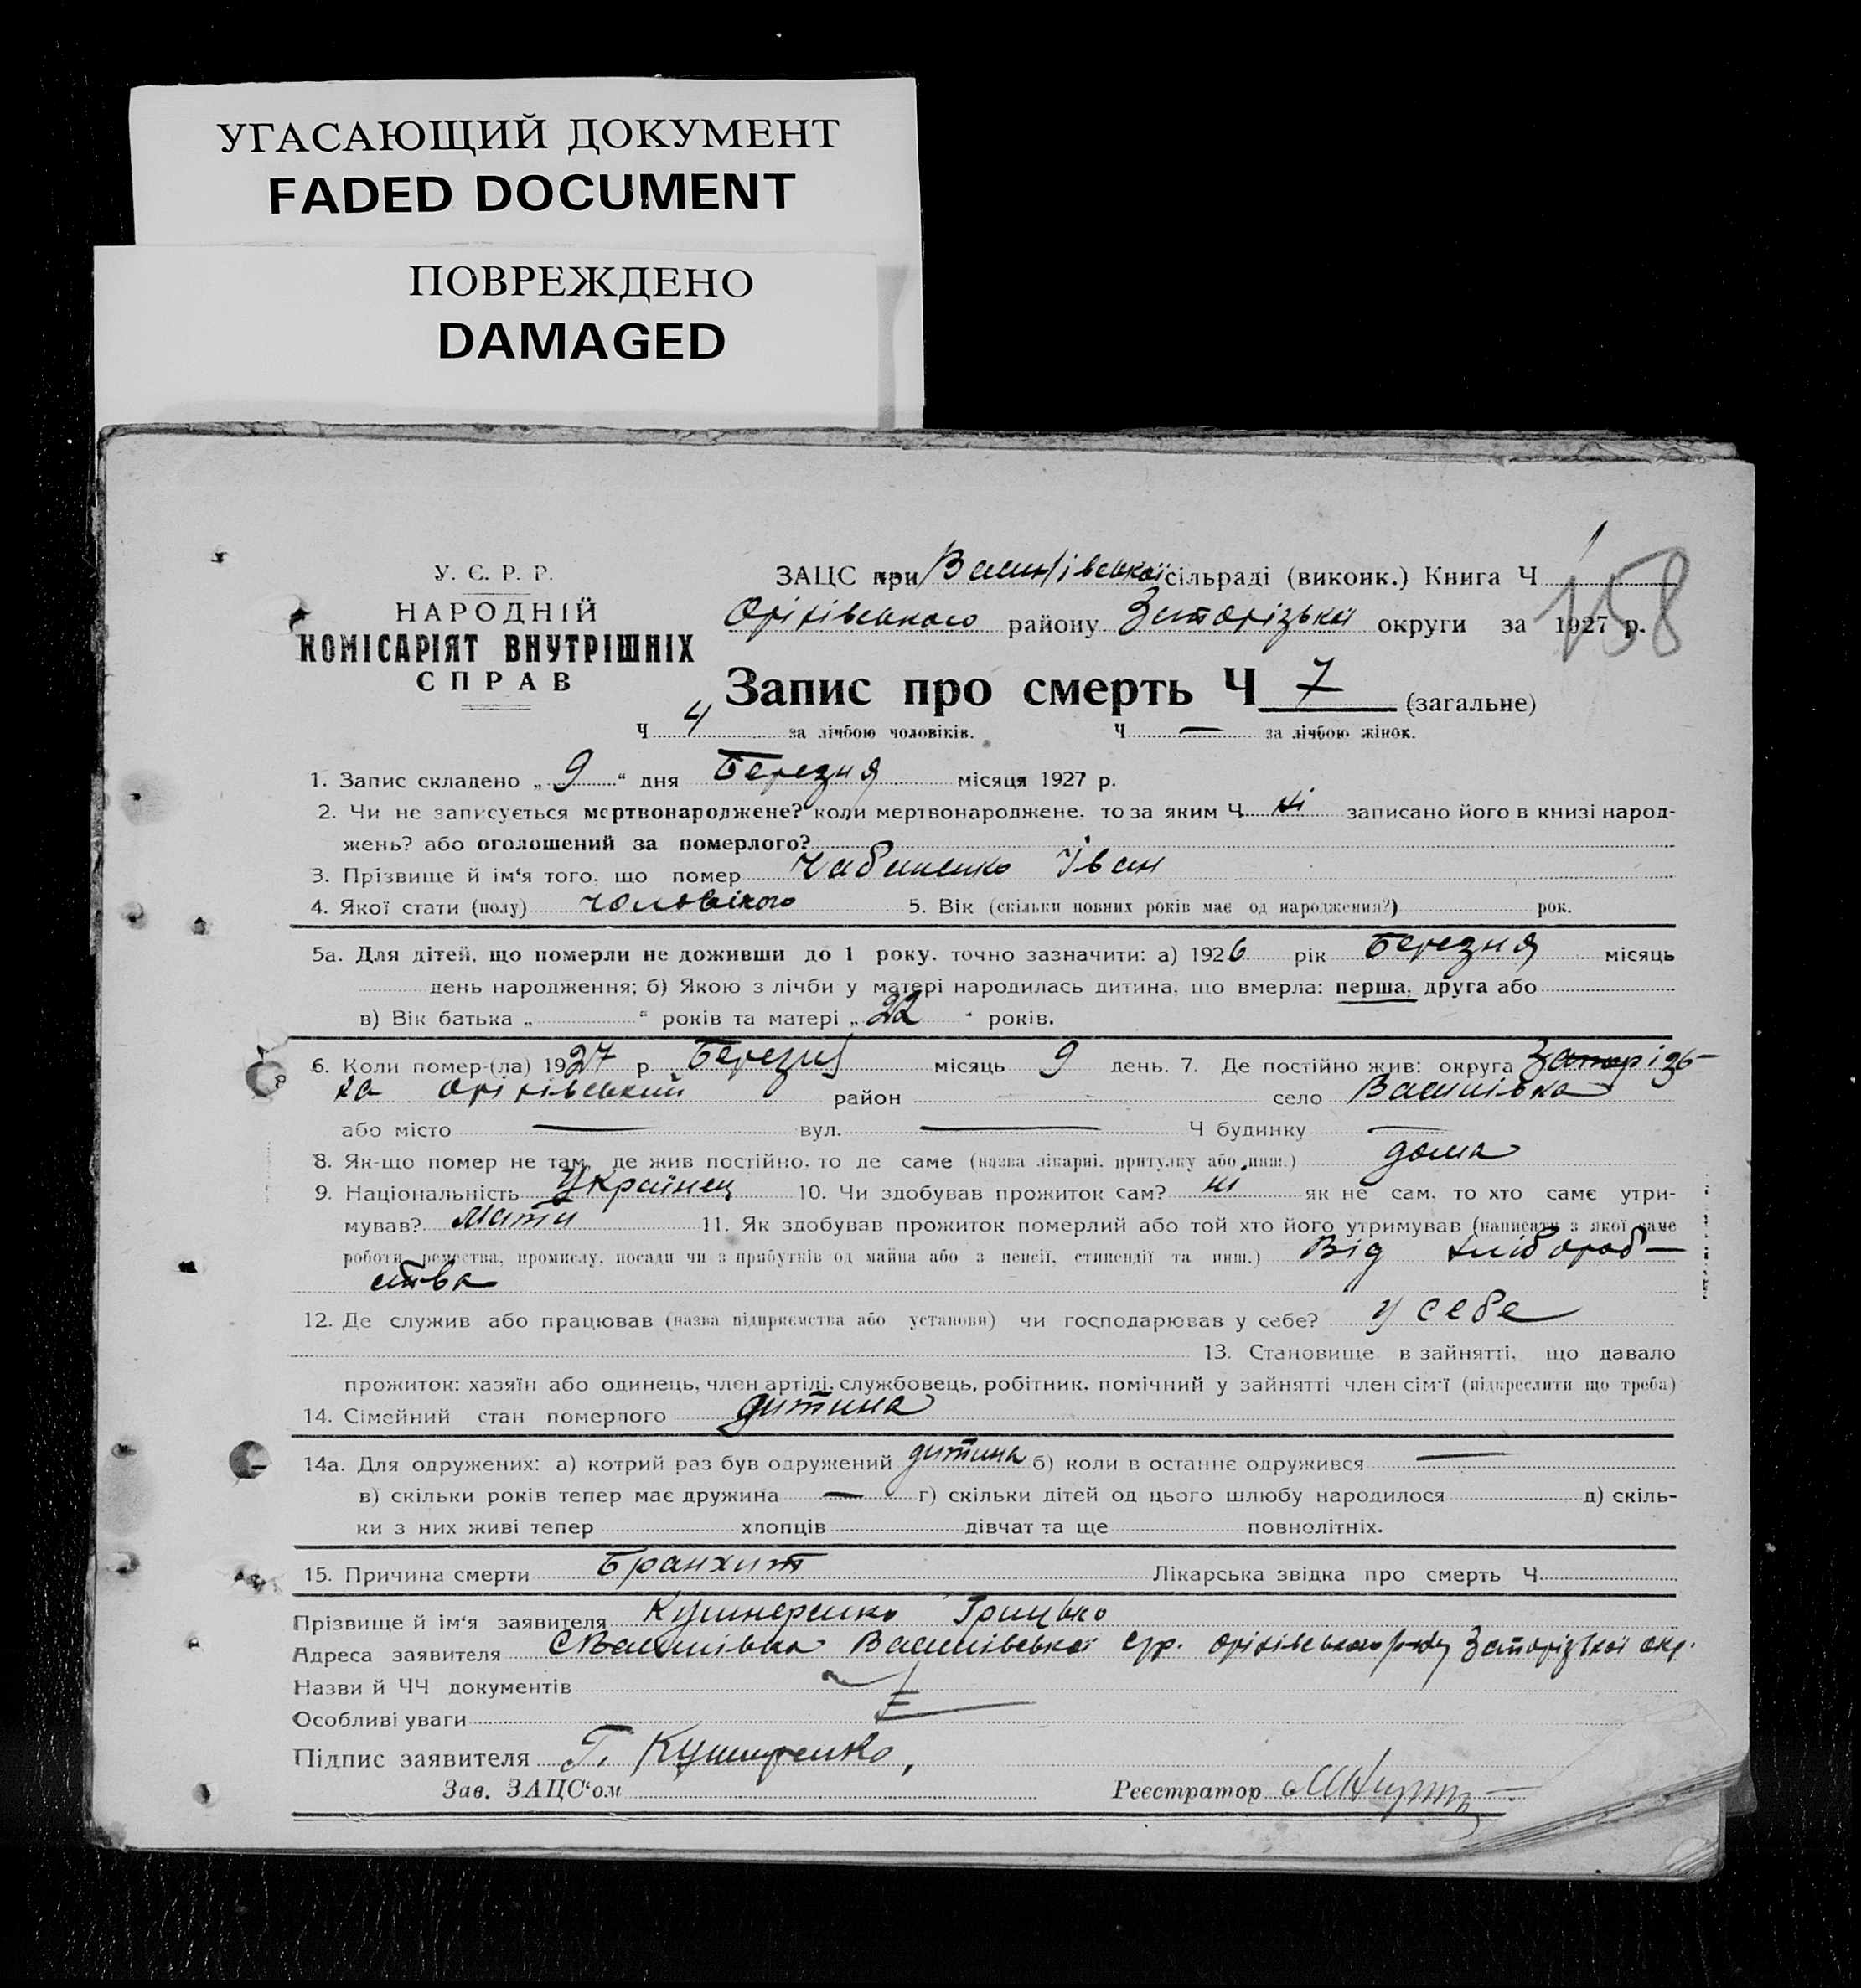 УГАСАЮЩИЙ ДОКУМЕНТ
FADED DOCUMENT
ПОВРЕЖДЕНО
DAMAGED
У. С. Р. Р.
НАРОДНІЙ
КОМІСАРІЯТ ВНУТРІШНІХ
СПРАВ
ЗАЦС при Василівської сільраді (виконк.) Книга Ч 1
158
Оріхівського району Запорізької округи за 1927 р.
Запис про смерть Ч 7 (загальне)
Ч 4 за лічбою чоловіків. Ч — за лічбою жінок.
1. Запис складено „ 9 “ дня Березня місяця 1927 р.
2. Чи не записується мертвонароджене? коли мертвонароджене, то за яким Ч ні записано його в книзі народ-
жень? або оголошений за померлого?
3. Прізвище й ім‘я того, що помер Чабаненко Іван
4. Якої стати (полу) чоловічого 5. Вік (скільки повних років має од народження?) рок.
5а. Для дітей, що померли не доживши до 1 року, точно зазначити: а) 1926 рік Березня місяць
день народження; б) Якою з лічби у матері народилась дитина, що вмерла: перша, друга або
в) Вік батька „ “ років та матері „ 22 “ років.
6. Коли помер-(ла) 1927 р. Березня місяць 9 день. 7. Де постійно жив: округа Запорізь-
ка Оріхівський район село Василівка
або місто — вул. — Ч будинку —
8. Як-що помер не там, де жив постійно, то де саме (назва лікарні, притулку або инш.) дома
9. Національність Українец 10. Чи здобував прожиток сам? ні як не сам, то хто саме утри-
мував? Мати 11. Як здобував прожиток померлий або той хто його утримував (написати з якої саме
роботи, ремества, промислу, посади чи з прибутків од майна або з пенсії, стипендії та инш.) Від хлібороб-
ства
12. Де служив або працював (назва підприємства або установи) чи господарював у себе? у себе
13. Становище в зайнятті, що давало
прожиток: хазяїн або одинець, член артілі, службовець, робітник, помічний у зайнятті член сім‘ї (підкреслити що треба)
14. Сімейний стан померлого дитина
14а. Для одружених: а) котрий раз був одружений дитина б) коли в останнє одружився —
в) скільки років тепер має дружина — г) скільки дітей од цього шлюбу народилося д) скіль-
ки з них живі тепер хлопців дівчат та ще повнолітніх.
15. Причина смерти Бранхит Лікарська звідка про смерть Ч
Прізвище й ім‘я заявителя Кушнеренко Грицько
Адреса заявителя с Василівка Василівської с/р. Оріхівського р-ну Запорізької окр.
Назви й ЧЧ документів
Особливі уваги
Підпис заявителя Г. Кушнренко,
Зав. ЗАЦС‘ом Реєстратор